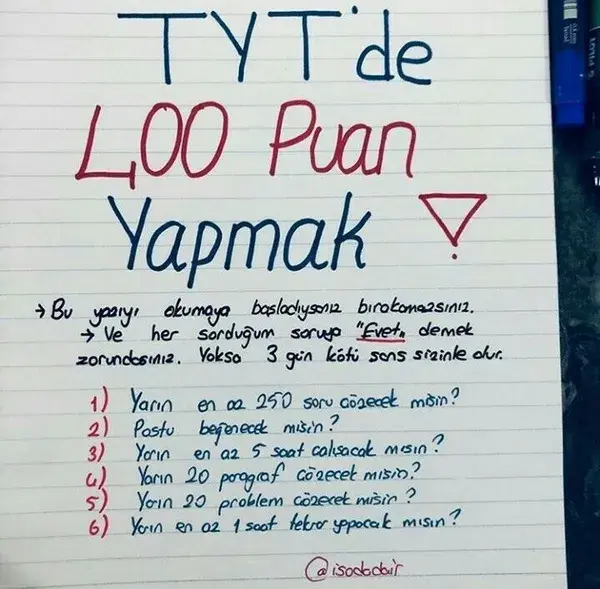 TYT'de
400 Puan
Yapmak
→ Bu yazıyı okumaya başladıysanız bırakamazsınız.
→ Ve her sorduğum soruya "Evet" demek
zorundasınız. Yoksa 3 gün kötü şans sizinle olur.
1) Yarın en az 250 soru çözecek misin?
2) Postu beğenecek misin?
3) Yarın en az 5 saat çalışacak mısın?
4) Yarın 20 paragraf çözecek misin?
5) Yarın 20 problem çözecek misin?
6) Yarın en az 1 saat tekrar yapacak mısın?
@isadadair